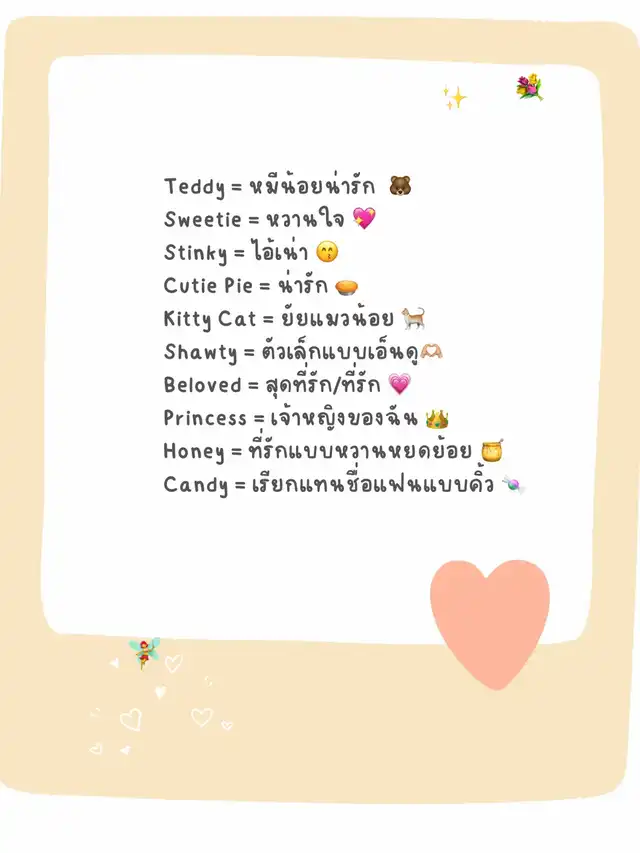 Teddy = หมีน้อยน่ารัก 🐻
Sweetie = หวานใจ 💖
Stinky = ไอ้เน่า 😙
Cutie Pie = น่ารัก 🥧
Kitty Cat = ยัยแมวน้อย 🐈
Shawty = ตัวเล็กแบบเอ็นดู🫶🏼
Beloved = สุดที่รัก/ที่รัก 💗
Princess = เจ้าหญิงของฉัน 👑
Honey = ที่รักแบบหวานหยดย้อย 🍯
Candy = เรียกแทนชื่อแฟนแบบคิ้ว 🍬